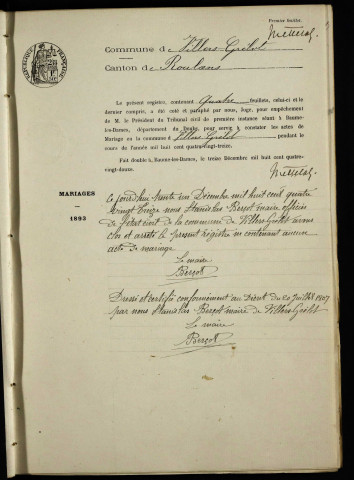 Premier feuillet.
Commune de Villers-Grélot
Canton de Roulans
RÉPUBLIQUE FRANÇAISE
Le présent registre, contenant quatre feuillets, celui-ci et le
dernier compris, a été coté et paraphé par nous, Juge, pour empêchement
de M. le Président du Tribunal civil de première instance séant à Baume-
les-Dames, département du Doubs, pour servir à constater les actes de
Mariage en la commune d Villers Grélot pendant le
cours de l'année mil huit cent quatre-vingt-treize.
Fait double à Baume-les-Dames, le treize Décembre mil huit cent quatre-
vingt-douze.
MARIAGES
1893
Ce jourd'hui trente un Décembre mil huit cent quatre
vingt treize nous Stanislas Berçot maire officier
de l'état civil de la commune de Villers Grélot avons
clos et arrêté le présent registre ne contenant aucun
acte de mariage
Le maire
Berçot
Dressé et certifié conformément au Décret du 20 Juillet 1807
par nous Stanislas Berçot maire de Villers Grélot
Le maire
Berçot